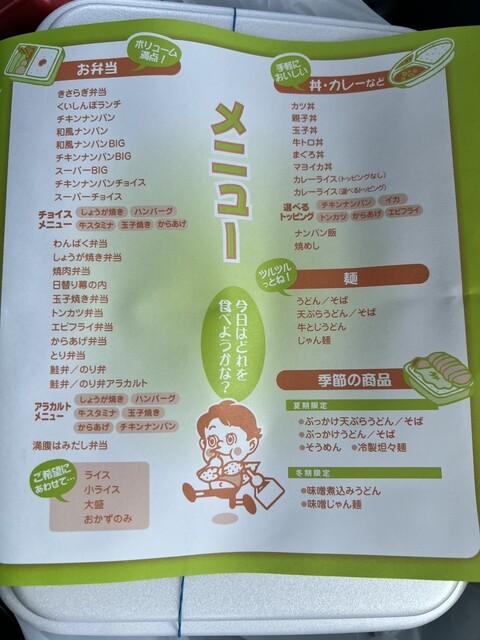 メニュー
お弁当
ボリューム
満点！
きさらぎ弁当
くいしんぼランチ
チキンナンバン
和風ナンバン
和風ナンバンBIG
チキンナンバンBIG
スーパーBIG
チキンナンバンチョイス
スーパーチョイス
チョイス
メニュー
しょうが焼き ハンバーグ
牛スタミナ 玉子焼き からあげ
わんぱく弁当
しょうが焼き弁当
焼肉弁当
日替り幕の内
玉子焼き弁当
トンカツ弁当
エビフライ弁当
からあげ弁当
とり弁当
鮭弁／のり弁
鮭弁／のり弁アラカルト
アラカルト
メニュー
しょうが焼き ハンバーグ
牛スタミナ 玉子焼き
からあげ チキンナンバン
満腹はみだし弁当
ご希望に
あわせて…
ライス
小ライス
大盛
おかずのみ
今日はどれを
食べよつかな？
手軽に
おいしい
丼・カレーなど
カツ丼
親子丼
玉子丼
牛トロ丼
まぐろ丼
マヨイカ丼
カレーライス(トッピングなし)
カレーライス(選べるトッピング)
選べる
トッピング
チキンナンバン イカ
トンカツ からあげ エビフライ
ナンバン飯
焼めし
ツルツル
っとね！
麺
うどん／そば
天ぷらうどん／そば
牛とじうどん
じゃん麺
季節の商品
夏期限定
●ぶっかけ天ぷらうどん／そば
●ぶっかけうどん／そば
●そうめん ●冷製坦々麺
冬期限定
●味噌煮込みうどん
●味噌じゃん麺